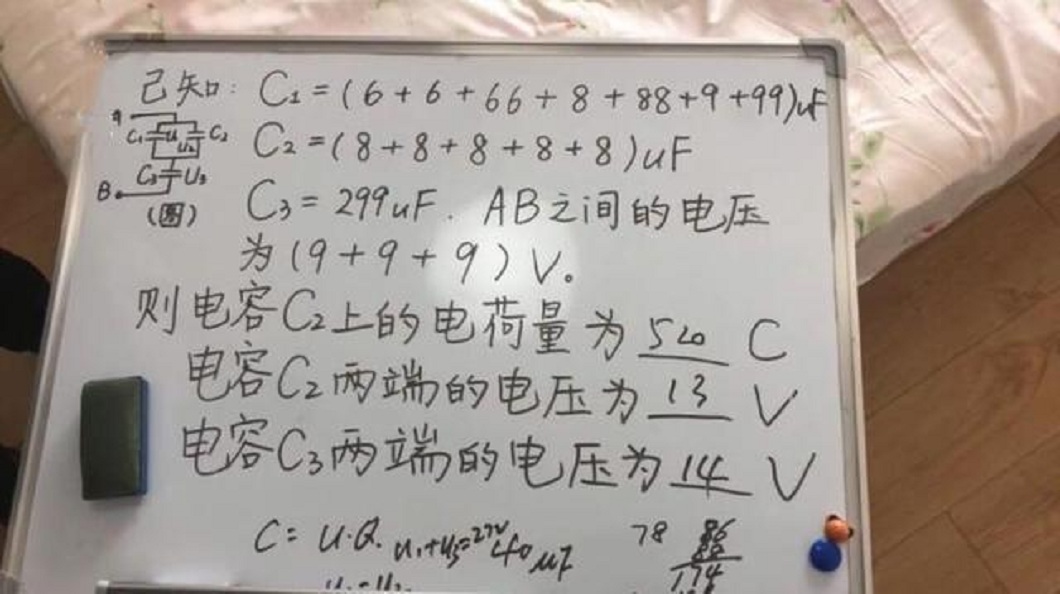 已知: C₁=(6+6+66+8+88+9+99)uF
A
C₁ U₁ U₂ C₂
C₂=(8+8+8+8+8)uF
C₃ U₃
B
(图)
C₃=299uF. AB之间的电压
为(9+9+9)V。
则电容C₂上的电荷量为520 C
电容C₂两端的电压为13 V
电容C₃两端的电压为14 V
C=U·Q. U₁+U₃=27V 40uF
78 86
88
174